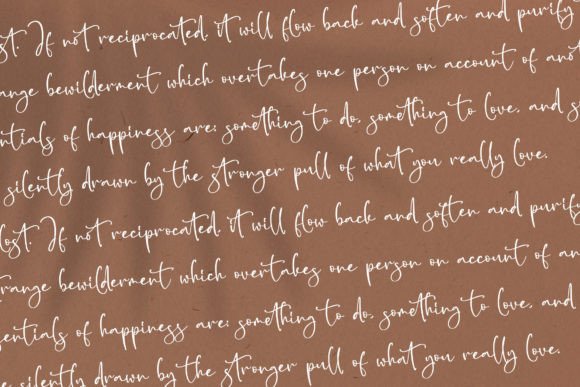 ost. If not reciprocated, it will flow back and soften and purify
ange bewilderment which overtakes one person on account of ano
entials of happiness are: something to do, something to love, and s
silently drawn by the stronger pull of what you really love.
lost. If not reciprocated, it will flow back and soften and purify
trange bewilderment which overtakes one person on account of an
sentials of happiness are: something to do, something to love, and
e silently drawn by the stronger pull of what you really love.